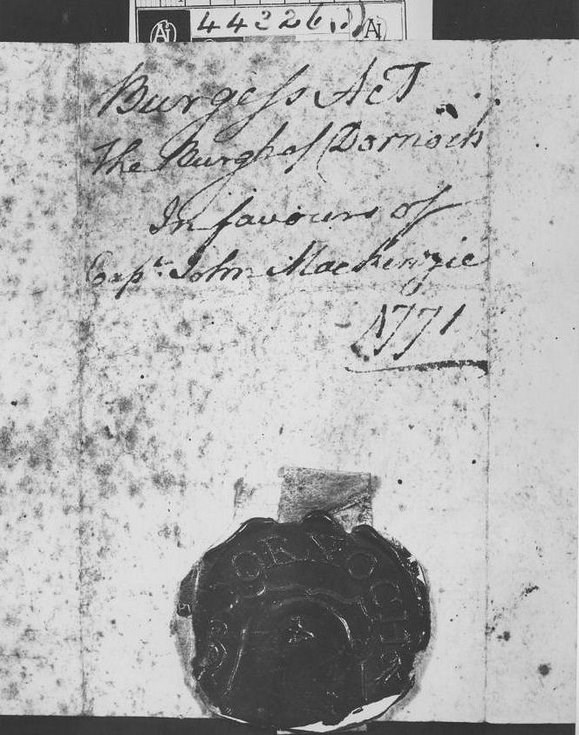 44226
Burgess Act
The Burgh of Dornoch
In favours of
Capt. John Mackenzie
1771